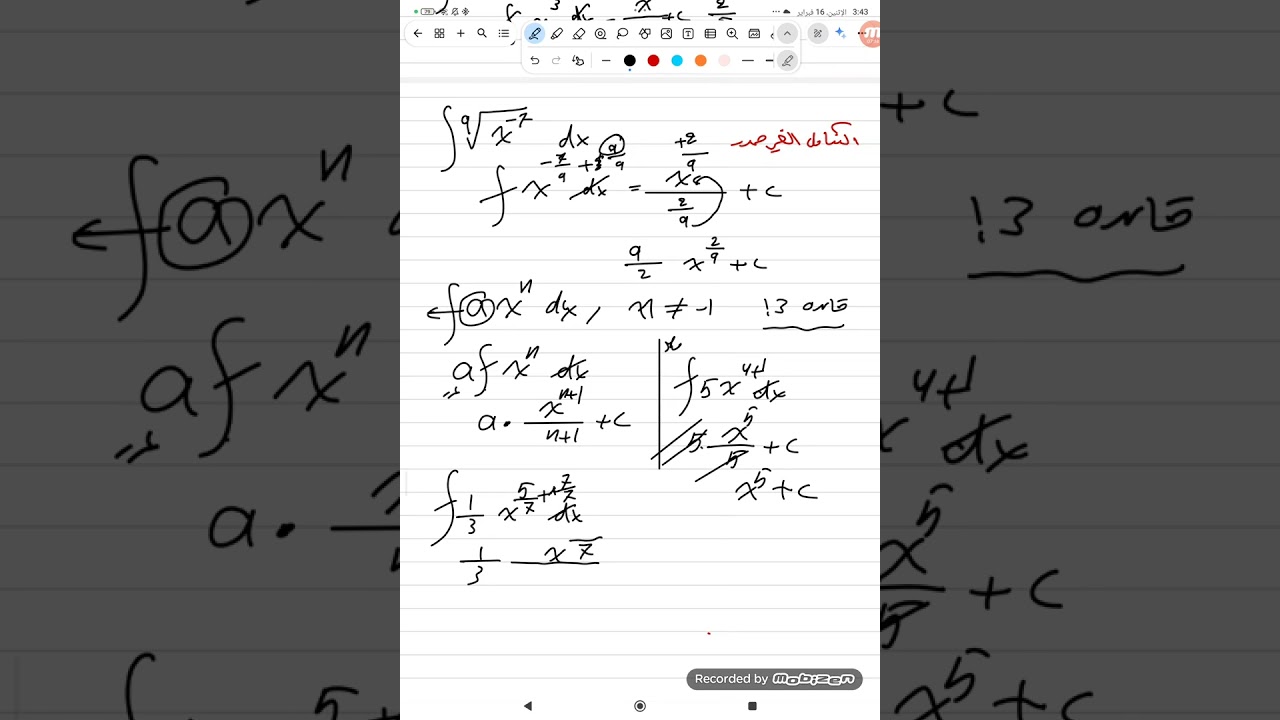 3:43 الإثنين، 16 فبراير
∫ ⁹√x⁻⁷ dx
التكامل الغير محدد
∫ x^(-7/9 + 9/9) dx = x^(+2/9) / (2/9) + c
9/2 x^(2/9) + c
∫ a xⁿ dx , n ≠ -1
a ∫ xⁿ dx
a · x^(n+1) / (n+1) + c
∫ 5x^(4+1) dx
5 · x⁵ / 5 + c
x⁵ + c
∫ 1/3 x^(5/7 + 7/7) dx
1/3 x^( /7)
Recorded by mobizen